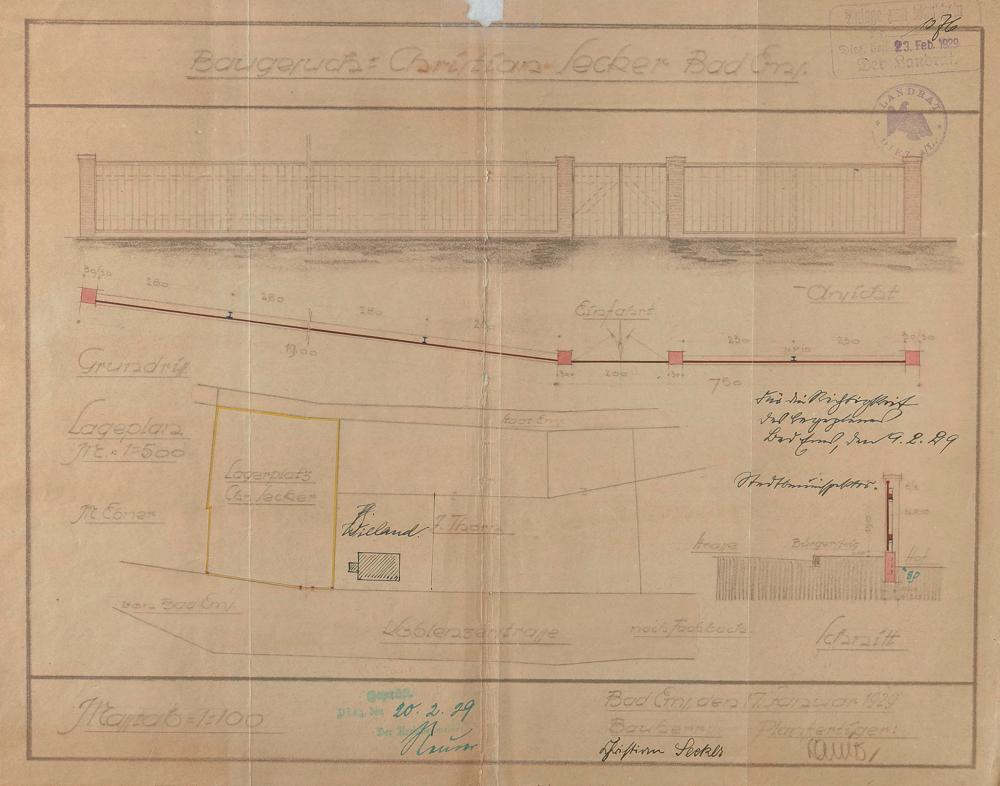 1276
23. Feb. 1929
Der Landrat
Baugesuch: Christian Secker Bad Ems.
LANDRAT
DIEZ
30/30
280
280
280
19.00
Ansicht
Einfahrt
250
250
30/30
200
750
Grundriß
Für die Richtigkeit
des Lageplanes
Bad Ems, den 9. 2. 29
Lageplan
M. = 1:500
Lagerplatz
Chr. Secker
Stadtbauinspektor.
M. Ebner
Wieland
J. Thorn
Straße
Bürgersteig
Hof
80
von Bad Ems
Koblenzerstraße
nach Fachbach
Schnitt
Maßstab = 1:100
Geprüft.
Diez, den 20. 2. 29
Bad Ems, den 17. Januar 1929
Bauherr:
Planfertiger:
Christian Secker